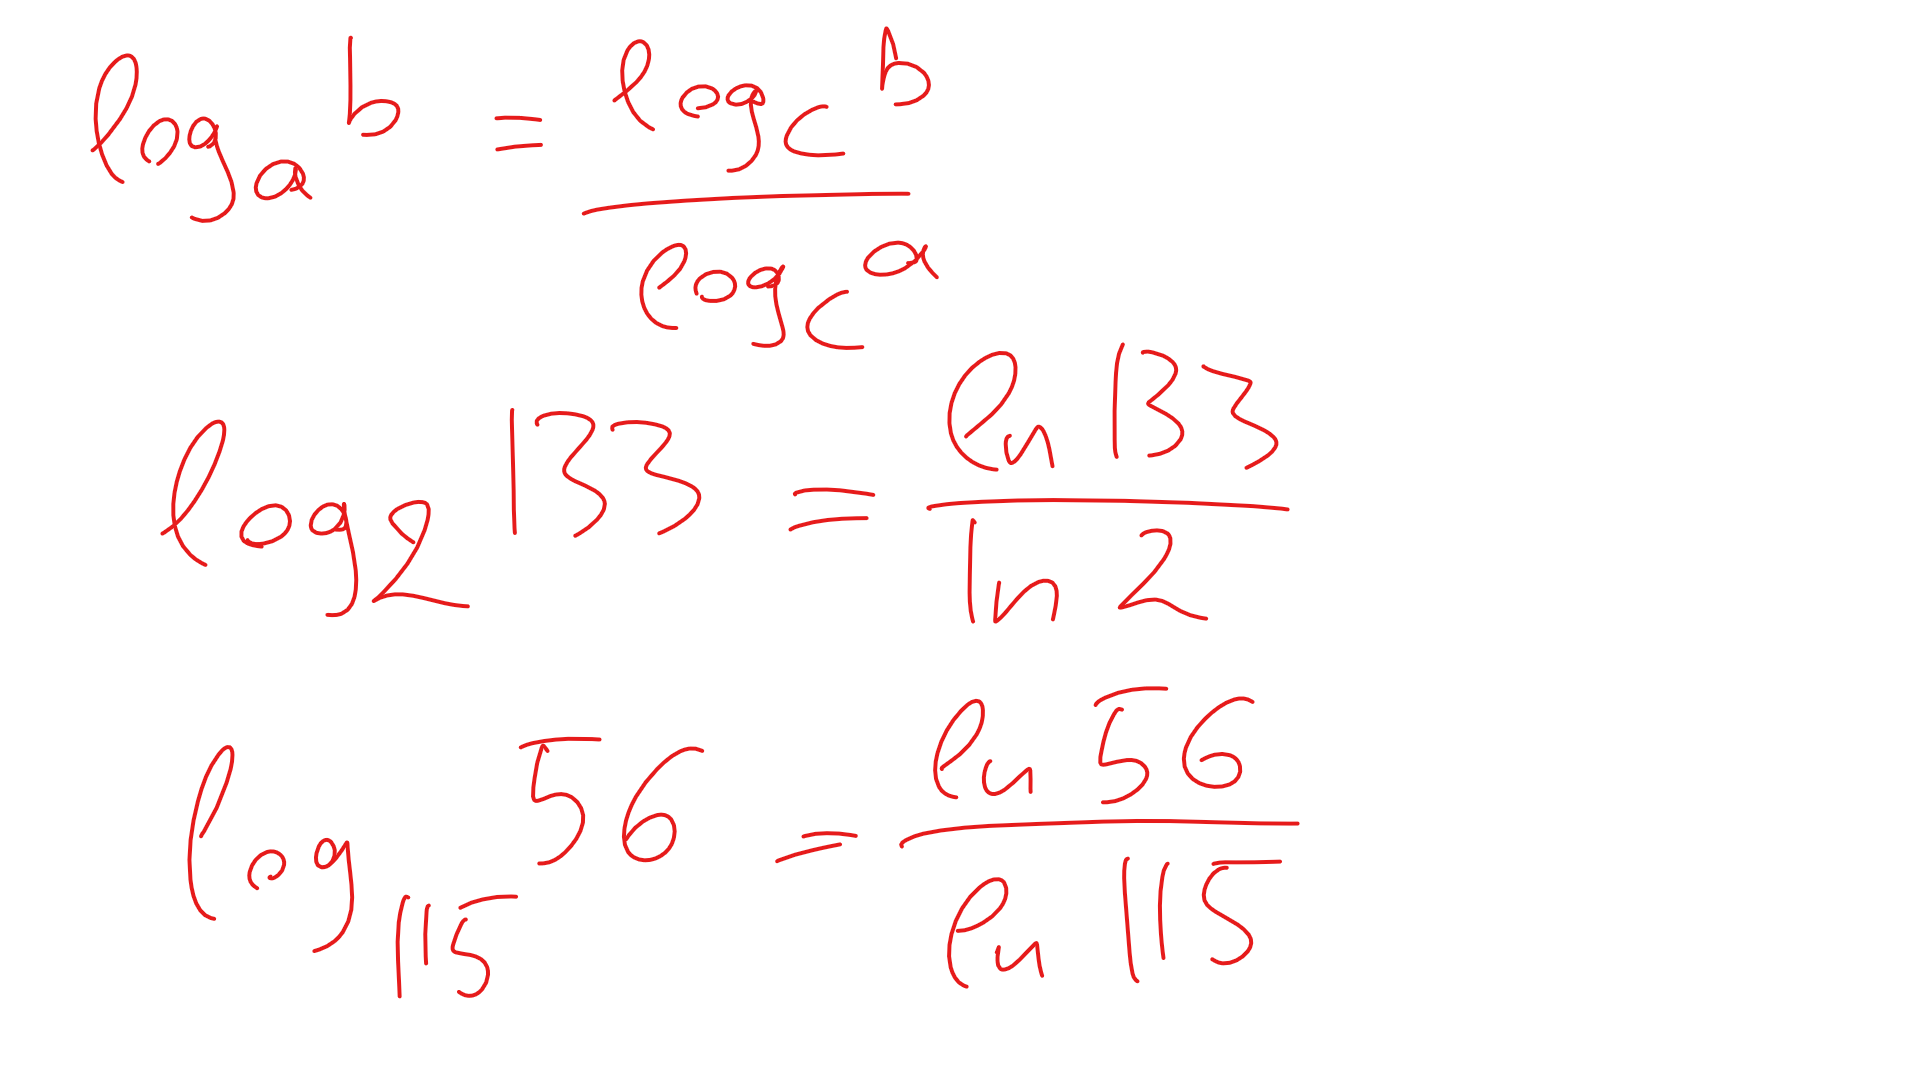 log_a b = log_c b / log_c a
log_2 133 = ln 133 / ln 2
log_115 56 = ln 56 / ln 115